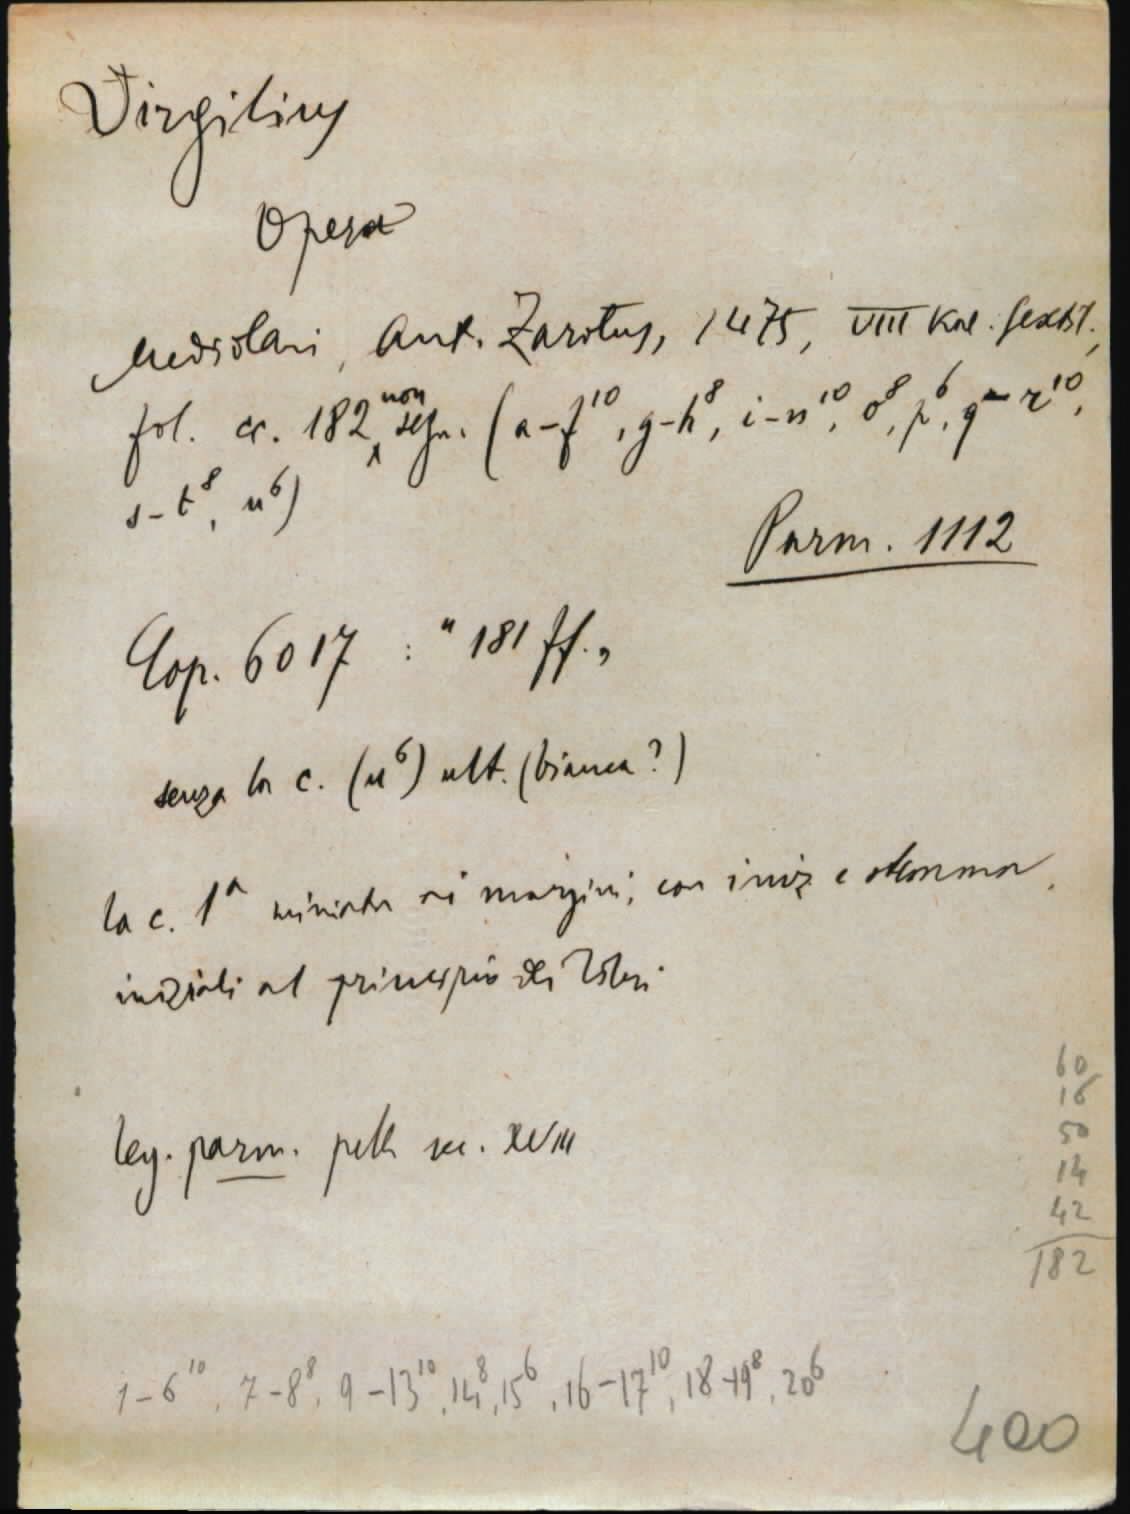 Virgilius
Opera
Mediolani, Ant. Zarotus, 1475, VIII Kal. Sextil.,
fol. cc. 182 non segn. (a-f¹⁰, g-h⁸, i-n¹⁰, o⁸, p⁶, q-r¹⁰,
s-t⁸, u⁶)
Parm. 1112
Cop. 6017 : "181 ff.„
senza la c. (u⁶) ult. (bianca?)
la c. 1ª miniata ai margini, con iniz e stemma.
iniziali al principio dei libri.
60
16
50
14
42
182
leg. parm. pelle sec. XVIII
1-6¹⁰, 7-8⁸, 9-13¹⁰, 14⁸, 15⁶, 16-17¹⁰, 18-19⁸, 20⁶
400